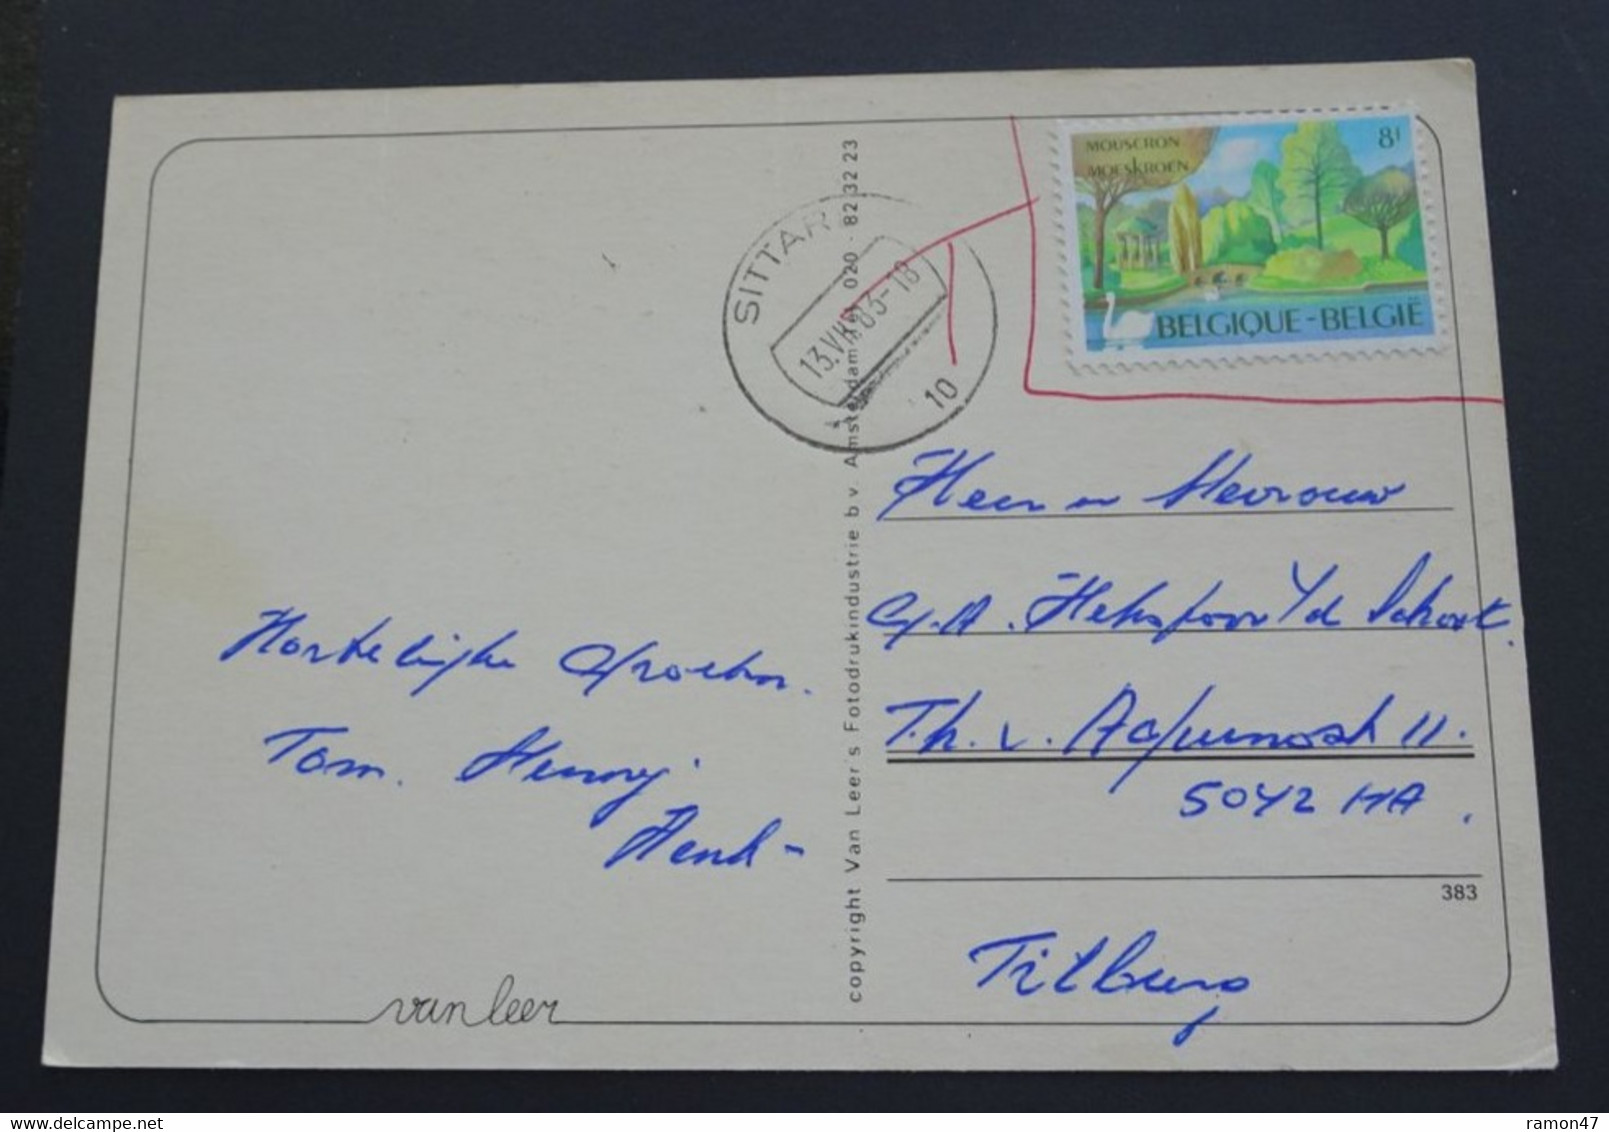 MOUSCRON
MOESKROEN
8F
BELGIQUE-BELGIË
SITTARD
13.VII.83-18
10
copyright Van Leer's Fotodrukindustrie b.v. Amsterdam 020 - 82 32 23
Hartelijke Groeten.
Tom. Henny
Henk-
Heer en Mevrouw
v/d
Th. v. 11.
5042 HA.
383
Tilburg
van leer
www.delcampe.net
ramon47